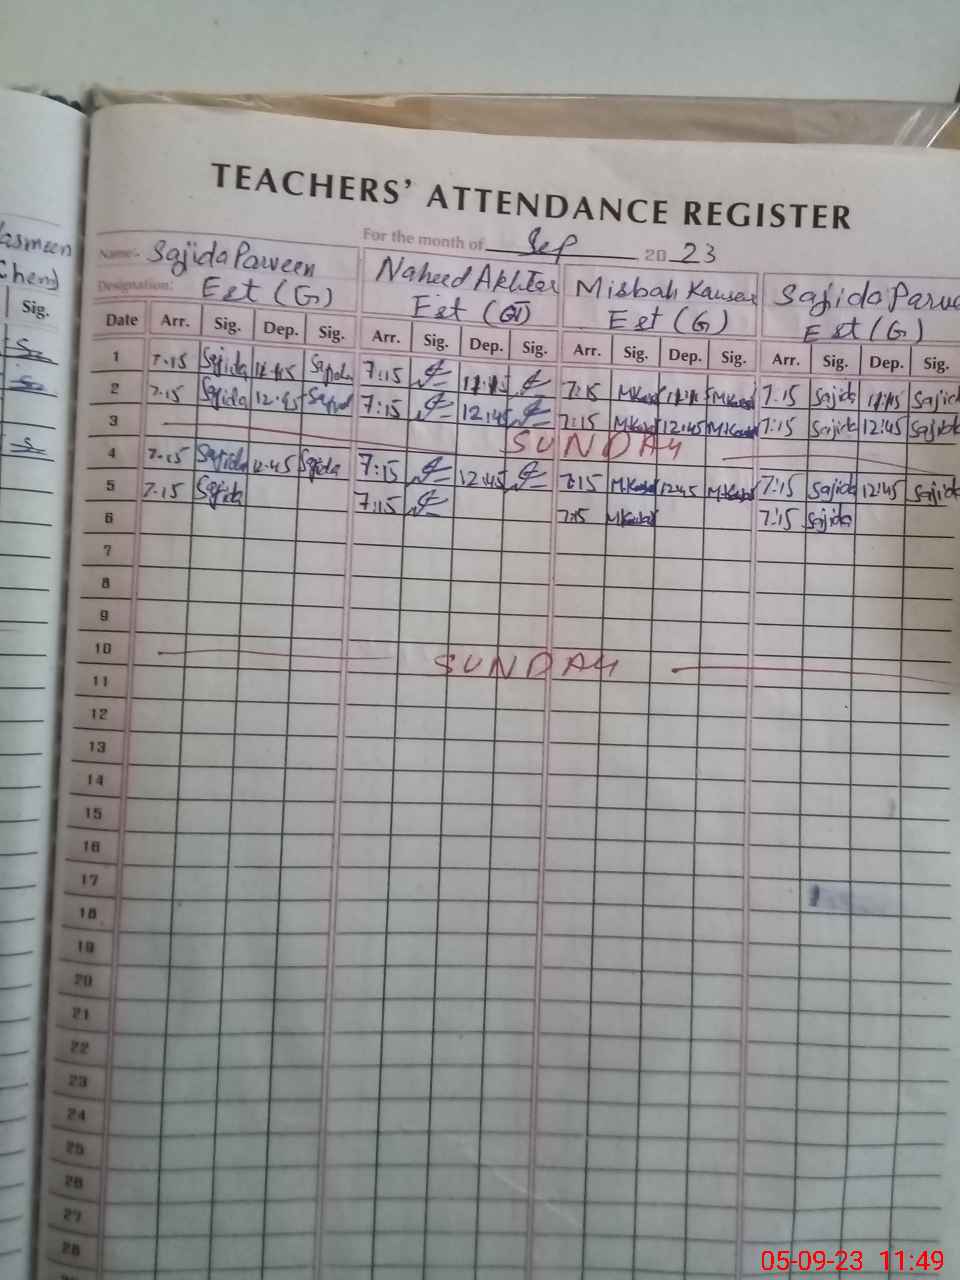 TEACHERS' ATTENDANCE REGISTER
For the month of Sep 20 23
Name:- Sajida Parveen Naheed Akhtar Misbah Kausar Sajida Parv
Designation: Est (G) Est (G) Est (G)
Date Arr. Sig. Dep. Sig. Arr. Sig. Dep. Sig. Arr. Sig. Dep. Sig. Arr. Sig. Dep. Sig.
1 7.15 Sajida Sajida 7:15 11:15 7:15 11:15 7:15 Sajida 11:15 Sajid
2 7.15 Sajida 12.45 7:15 12:45 7:15 12:45 7:15 Sajida 12:45 Sajida
3 SUNDAY
4 7.15 Sajida 12.45 Sajida 7:15 12:45 7:15 12:45 7:15 Sajida 12:45 Sajida
5 7.15 Sajida 7:15 7:15 7:15 Sajida
6
7
8
9
10 SUNDAY
11
12
13
14
15
16
17
18
19
20
21
22
23
24
25
26
27
28
Yasmeen
Chem)
Sig.
05-09-23 11:49